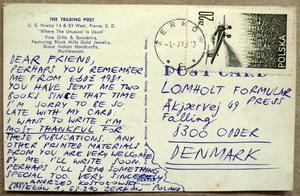 THE TRADING POST
U. S. Hiway 14 & 83 West, Pierre, S. D.
"Where The Unusual Is Usual"
Fine Gifts & Souvenirs,
Featuring Black Hills Gold Jewelry,
Sioux Indian Handcrafts,
Myrtlewood.
DEAR FRIEND,
PERHAPS YOU REMEMBER
ME FROM 1981.
YOU HAVE SENT ME TWO
BOOKS SINCE THAT TIME
I'M SORRY TO BE SO
LATE WITH MY CARD.
I WANT TO WRITE I'M
MOST THANKFUL FOR
THESE PUBLICATIONS. ANY
OTHER PRINTED MATERIALS
FROM YOU ARE VERY WELCOME
BY ME. I'LL WRITE SOON.
PERHAPS I'LL SEND SOMETHING
SPECIAL TOO. VERY SINCERELY
ANDRZEJ
ŻERKÓW POLAND
ŻERKÓW
POLSKA
POST CARD
LOMHOLT FORMULAR
PRESS
49
Falling
8300 ODDER
DENMARK